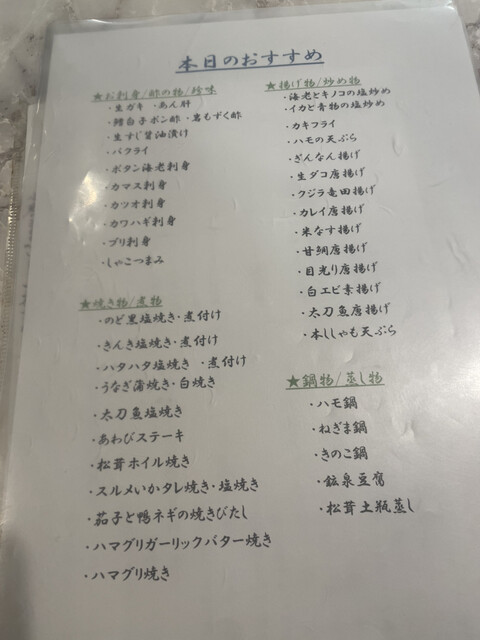 本日のおすすめ
★お刺身/酢の物/珍味
・生ガキ ・あん肝
・鱈白子ポン酢 ・岩もずく酢
・生すじ醤油漬け
・バクライ
・ボタン海老刺身
・カマス刺身
・カツオ刺身
・カワハギ刺身
・ブリ刺身
・しゃこつまみ
★焼き物/煮物
・のど黒塩焼き・煮付け
・きんき塩焼き・煮付け
・ハタハタ塩焼き ・煮付け
・うなぎ蒲焼き・白焼き
・太刀魚塩焼き
・あわびステーキ
・松茸ホイル焼き
・スルメいかタレ焼き・塩焼き
・茄子と鴨ネギの焼きびたし
・ハマグリガーリックバター焼き
・ハマグリ焼き
★揚げ物/炒め物
・海老とキノコの塩炒め
・イカと青物の塩炒め
・カキフライ
・ハモの天ぷら
・ぎんなん揚げ
・生ダコ唐揚げ
・クジラ竜田揚げ
・カレイ唐揚げ
・米なす揚げ
・甘鯛唐揚げ
・目光り唐揚げ
・白エビ素揚げ
・太刀魚唐揚げ
・本ししゃも天ぷら
★鍋物/蒸し物
・ハモ鍋
・ねぎま鍋
・きのこ鍋
・鉱泉豆腐
・松茸土瓶蒸し